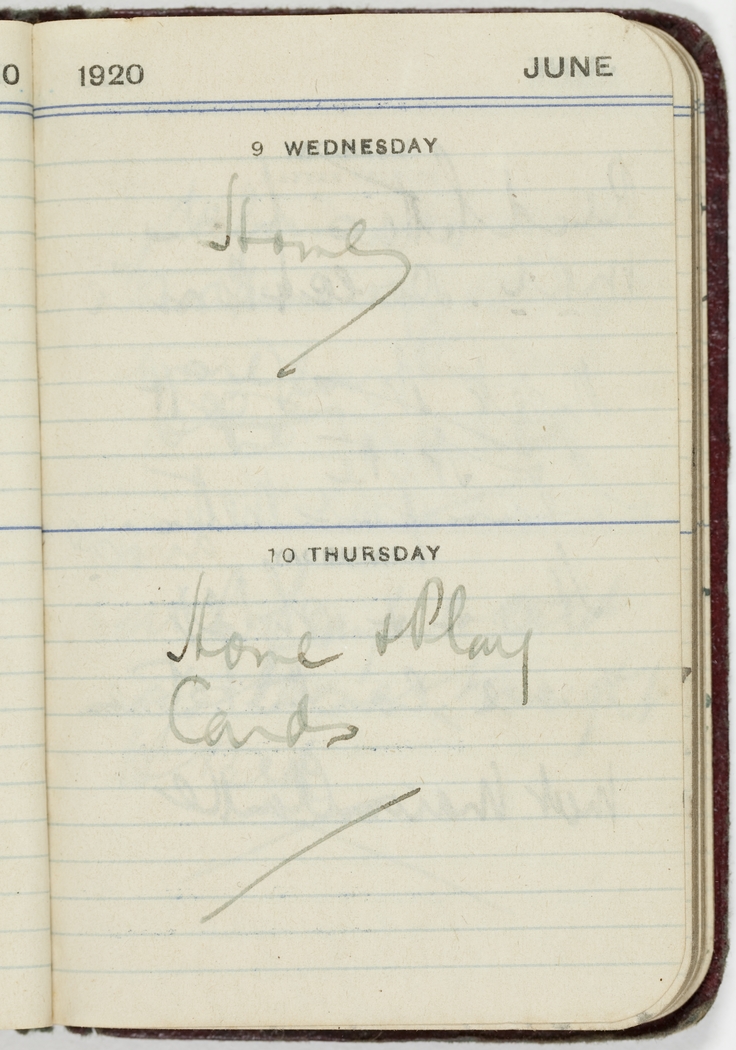 0 1920 JUNE
9 WEDNESDAY
Home
10 THURSDAY
Home & Play
Cards